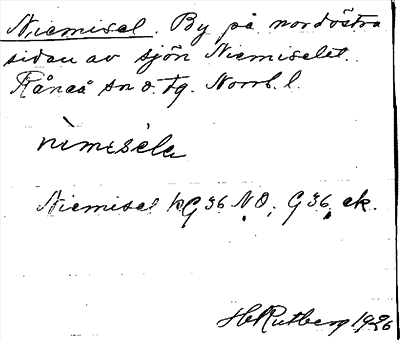 Niemisel. By på nordöstra
sidan av sjön Niemiselet.
Råneå sn o. tg. Norrb. l.
nìmɛsèla
Niemisel kG36 NO; G36, ek.
H Rutberg 1926